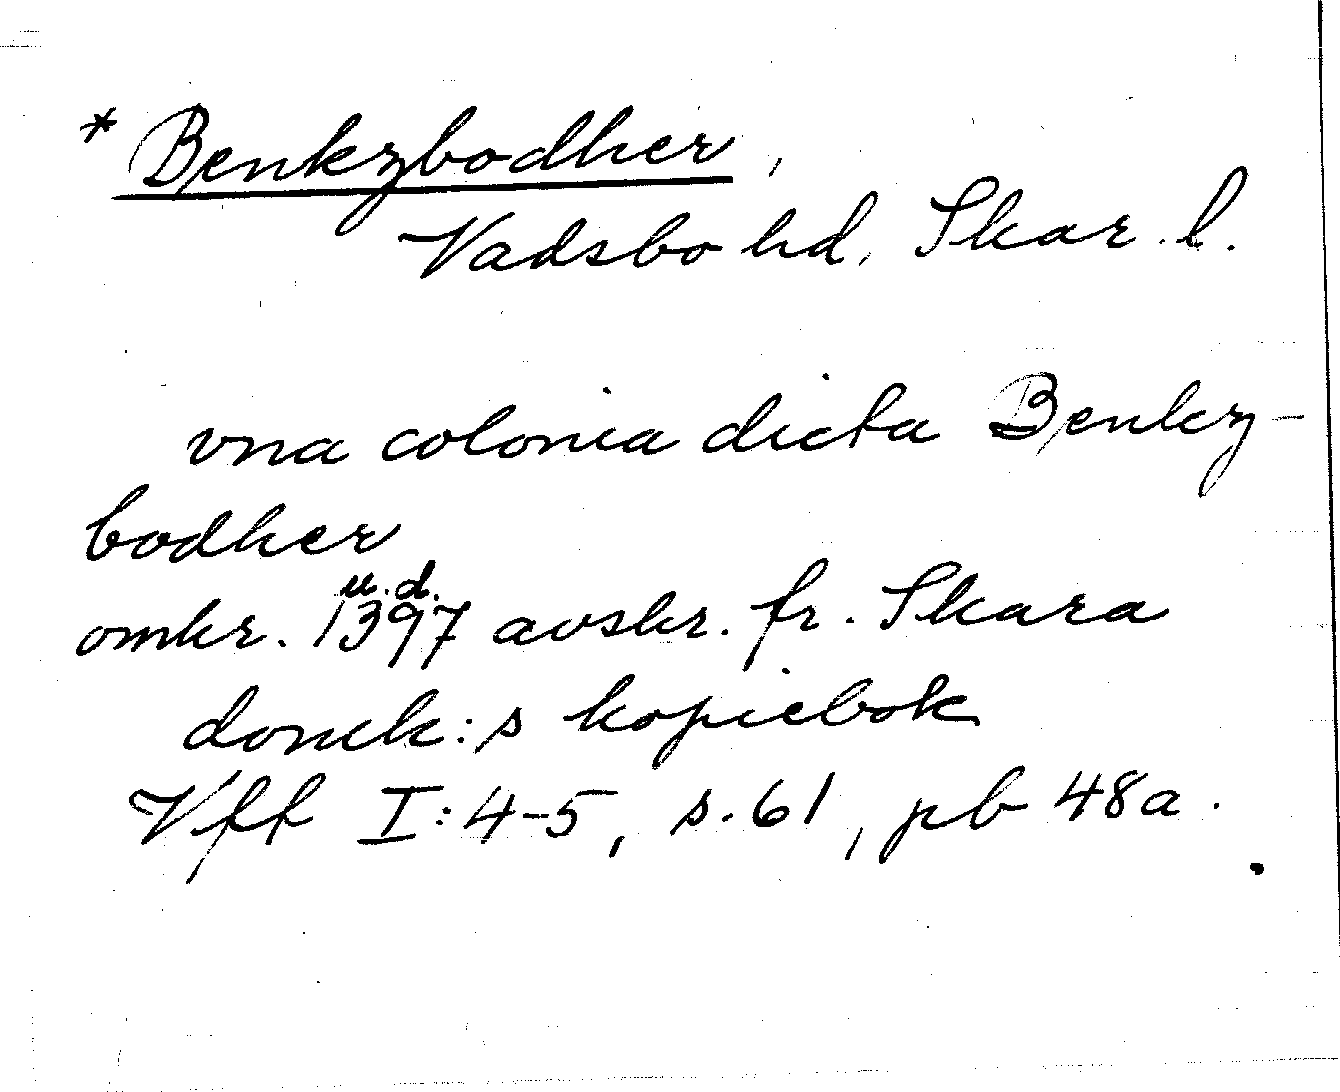 * Benkzbodher,
Vadsbo hd, Skar. l.
vna colonia dicta Benkz-
bodher
u.d.
omkr. 1397 avskr. fr. Skara
domk:s kopiebok
Vff I:4-5, s. 61, pb 48a.